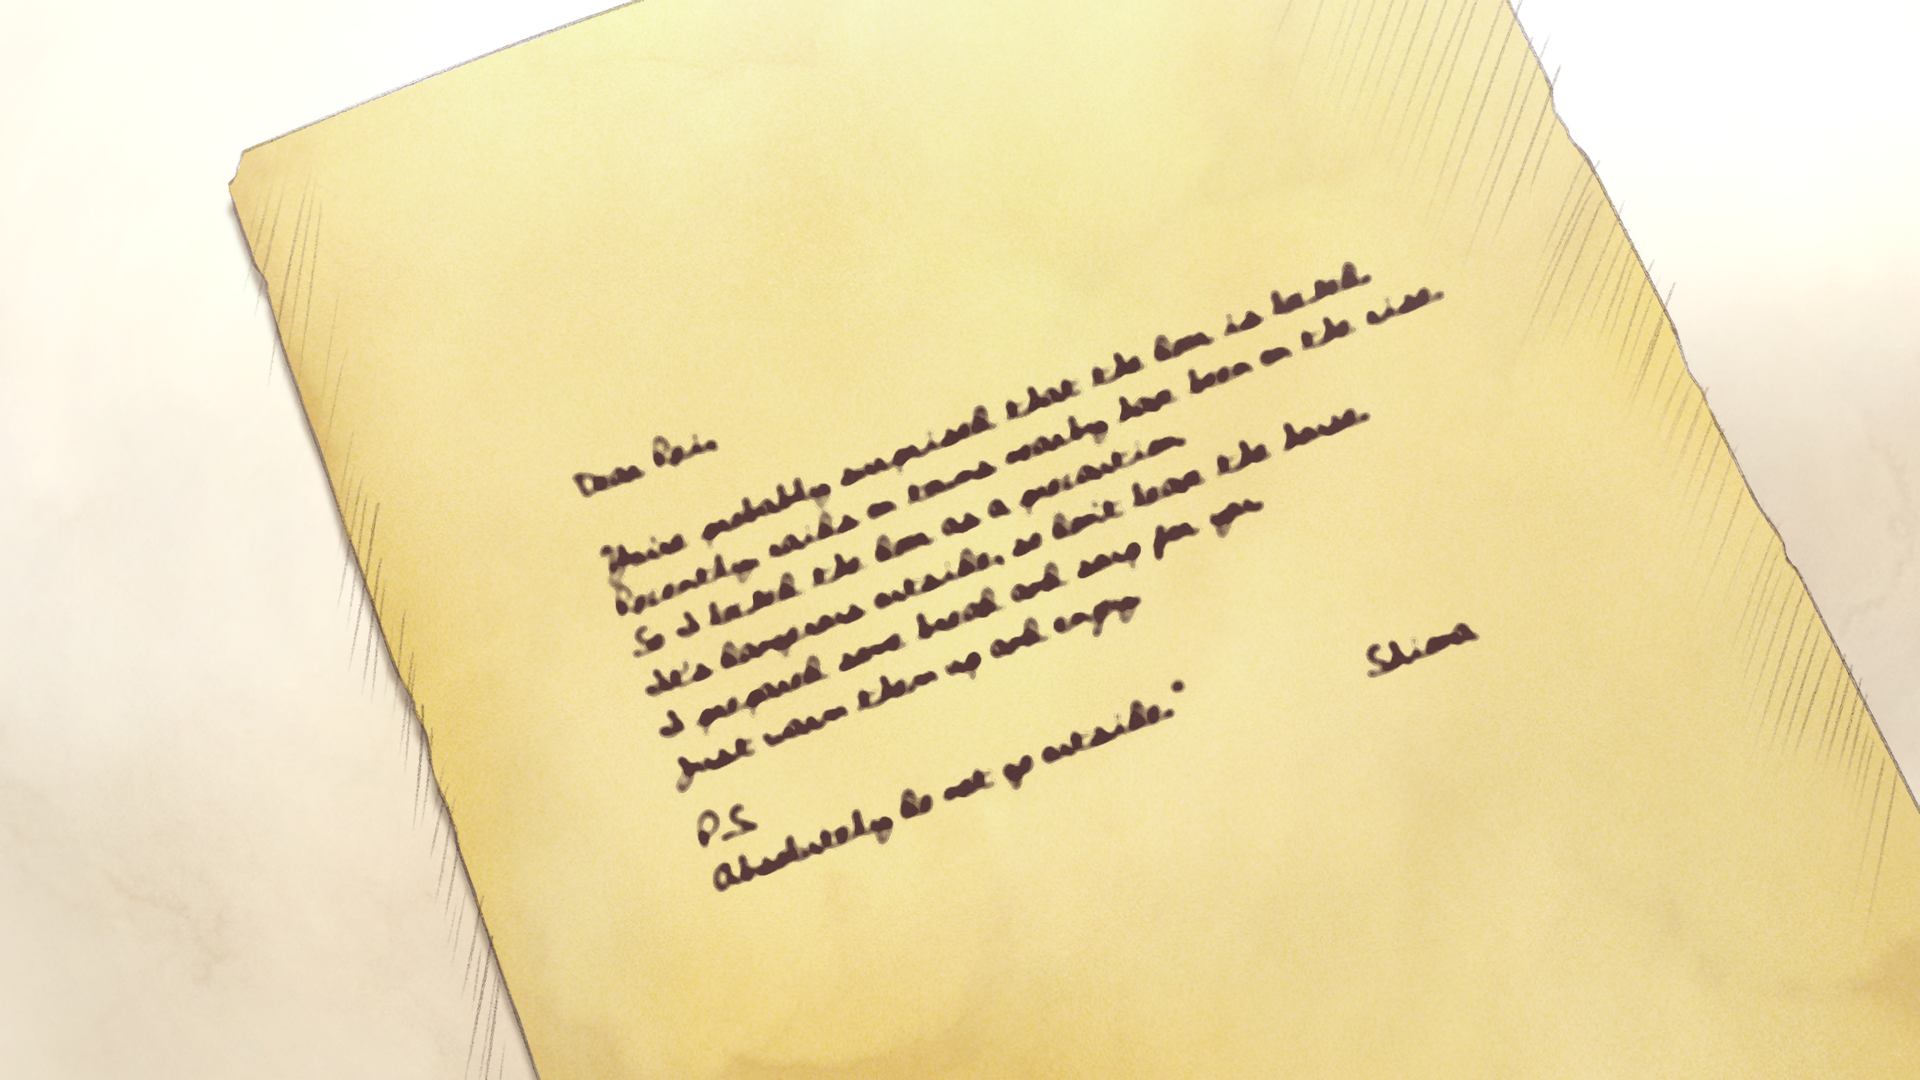 Dear Rei.
You're probably surprised that the door is locked.
Recently raids on towns nearby have been on the rise.
So I locked the door as a precaution
It's dangerous outside, so don't leave the house.
I prepared some bread and soup for you
Just warm them up and enjoy
Shiona
P.S
Absolutely do not go outside."